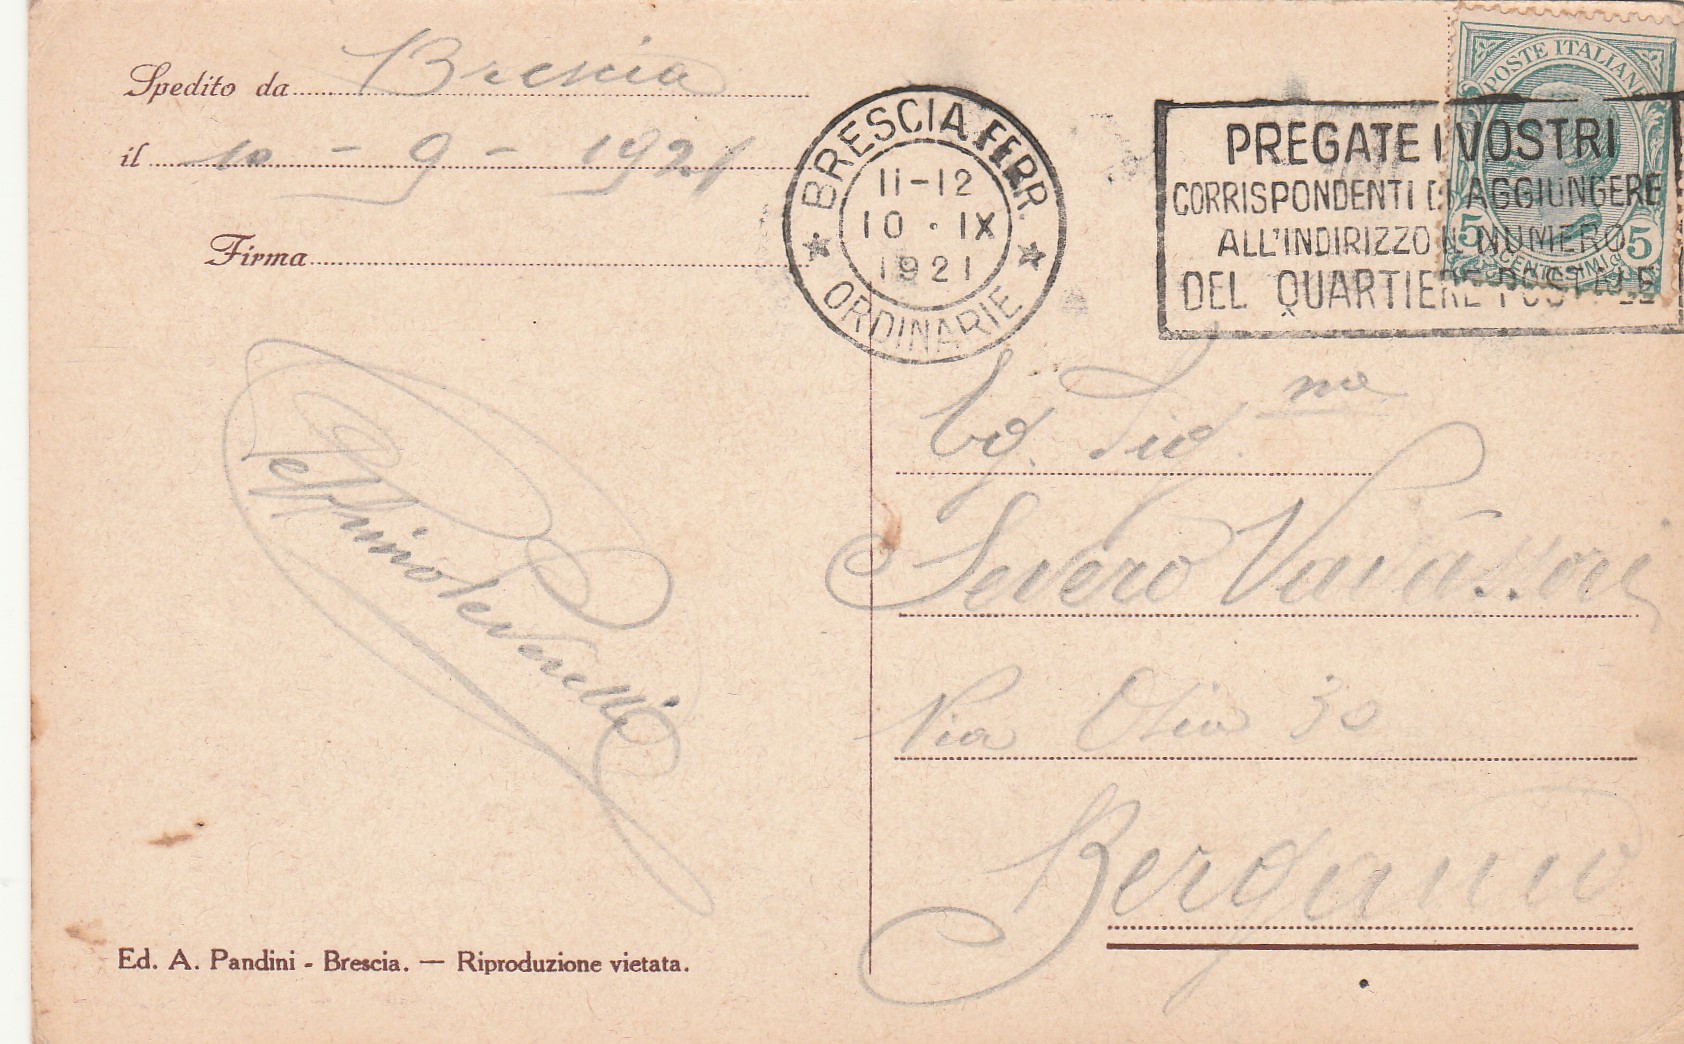 Spedito da Brescia
il 10 - 9 - 1921
Firma
BRESCIA FERR.
11-12
10 · IX
1921
ORDINARIE
PREGATE I VOSTRI
CORRISPONDENTI DI AGGIUNGERE
ALL'INDIRIZZO IL NUMERO
DEL QUARTIERE POSTALE
POSTE ITALIANE
5 5
CENTESIMI
Severo Vavassori
Via 30
Bergamo
Ed. A. Pandini - Brescia. — Riproduzione vietata.